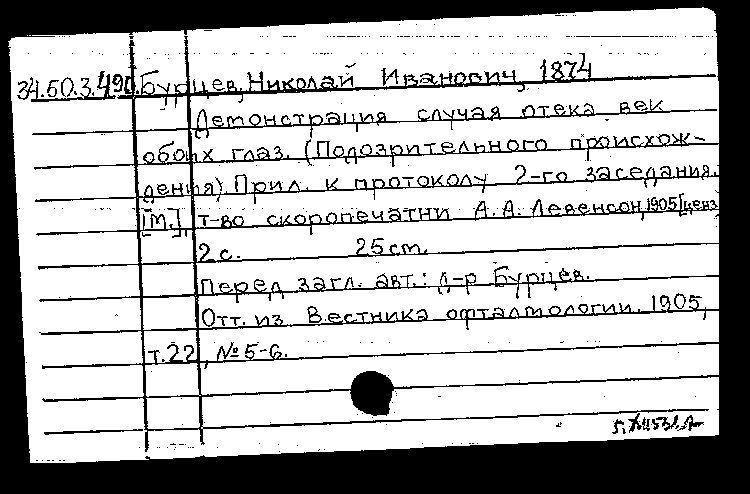 34.50.3.490. Бурцев, Николай Иванович, 1874
Демонстрация случая отека век
обоих глаз. (Подозрительного происхож-
дения). Прил. к протоколу 2-го заседания.
[М.], т-во скоропечатни А. А. Левенсон, 1905 [ценз
2 с. 25 см.
Перед загл. авт.: д-р Бурцев.
Отт. из Вестника офталмологии. 1905,
т. 22, № 5-6.